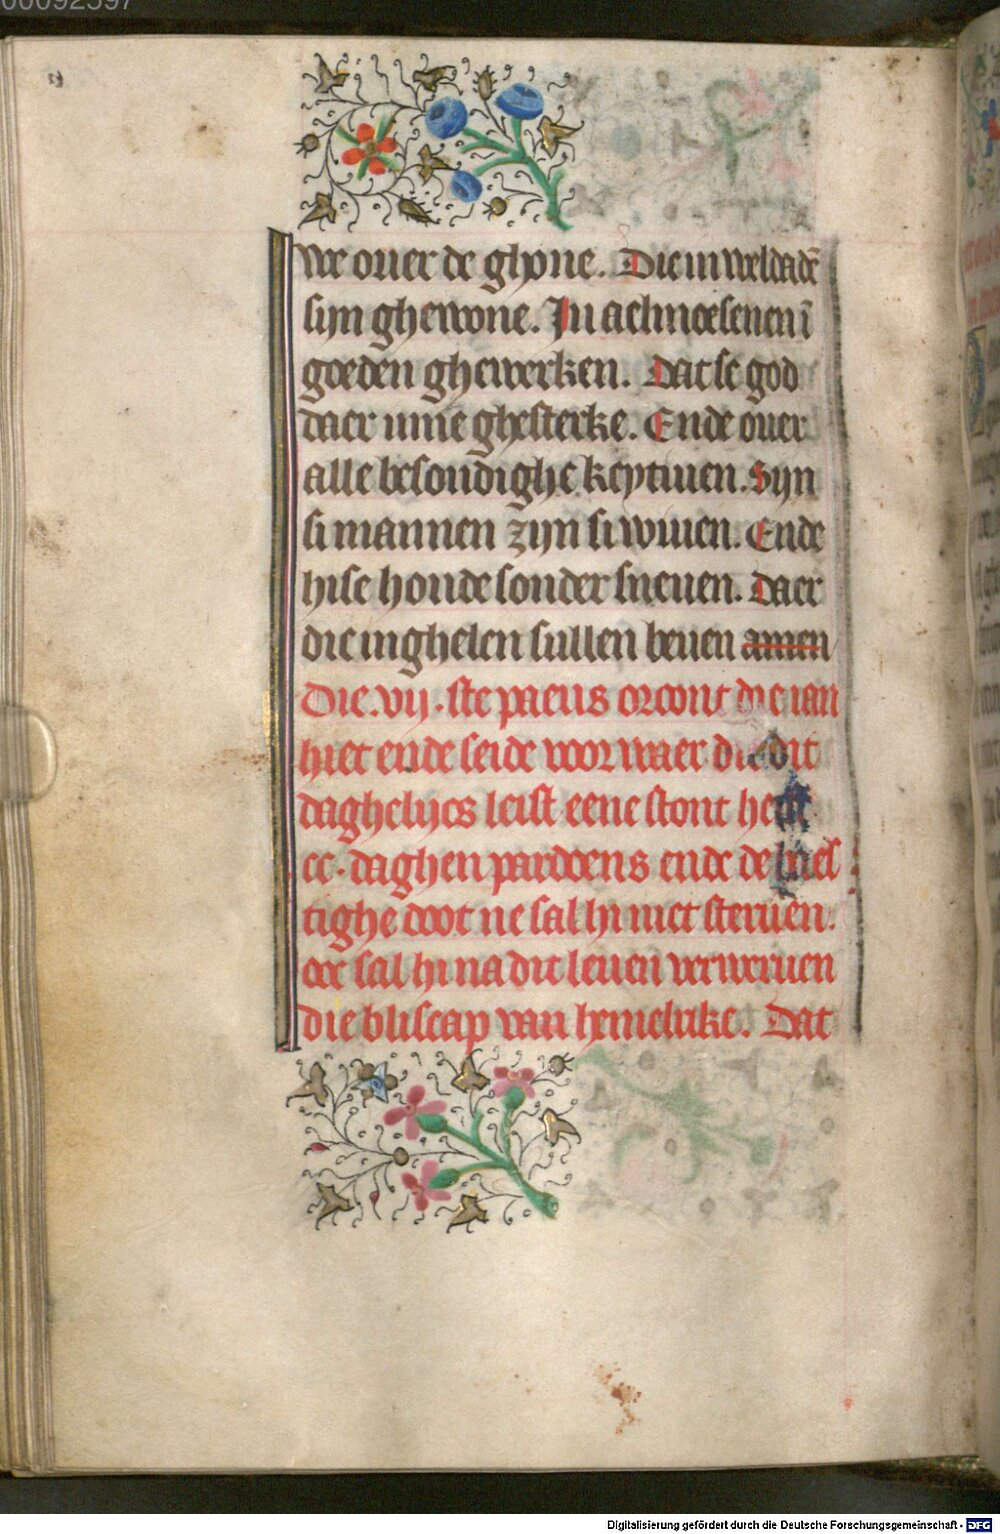 00092597
we ouer de ghone. Die in weldadē
sijn ghewone. In aelmoesenen ī
goeden ghewerken. Dat se god
daer mme ghesterke. Ende ouer
alle besondighe keytiuen. Sijn
si mannen zijn si wiuen. Ende
hise houde sonder sneuen. Daer
die inghelen sullen beuen amen
Die .vij. ste paeus orcont die ian
hiet ende seide voorwaer die dit
daghelijcs leist eene stont heeft
cc. daghen pardoens ende de
tighe doot ne sal hi niet steruen.
oec sal hi na dit leuen verweruen
die bliscap van hemelrike. Dat
Digitalisierung gefördert durch die Deutsche Forschungsgemeinschaft - DFG